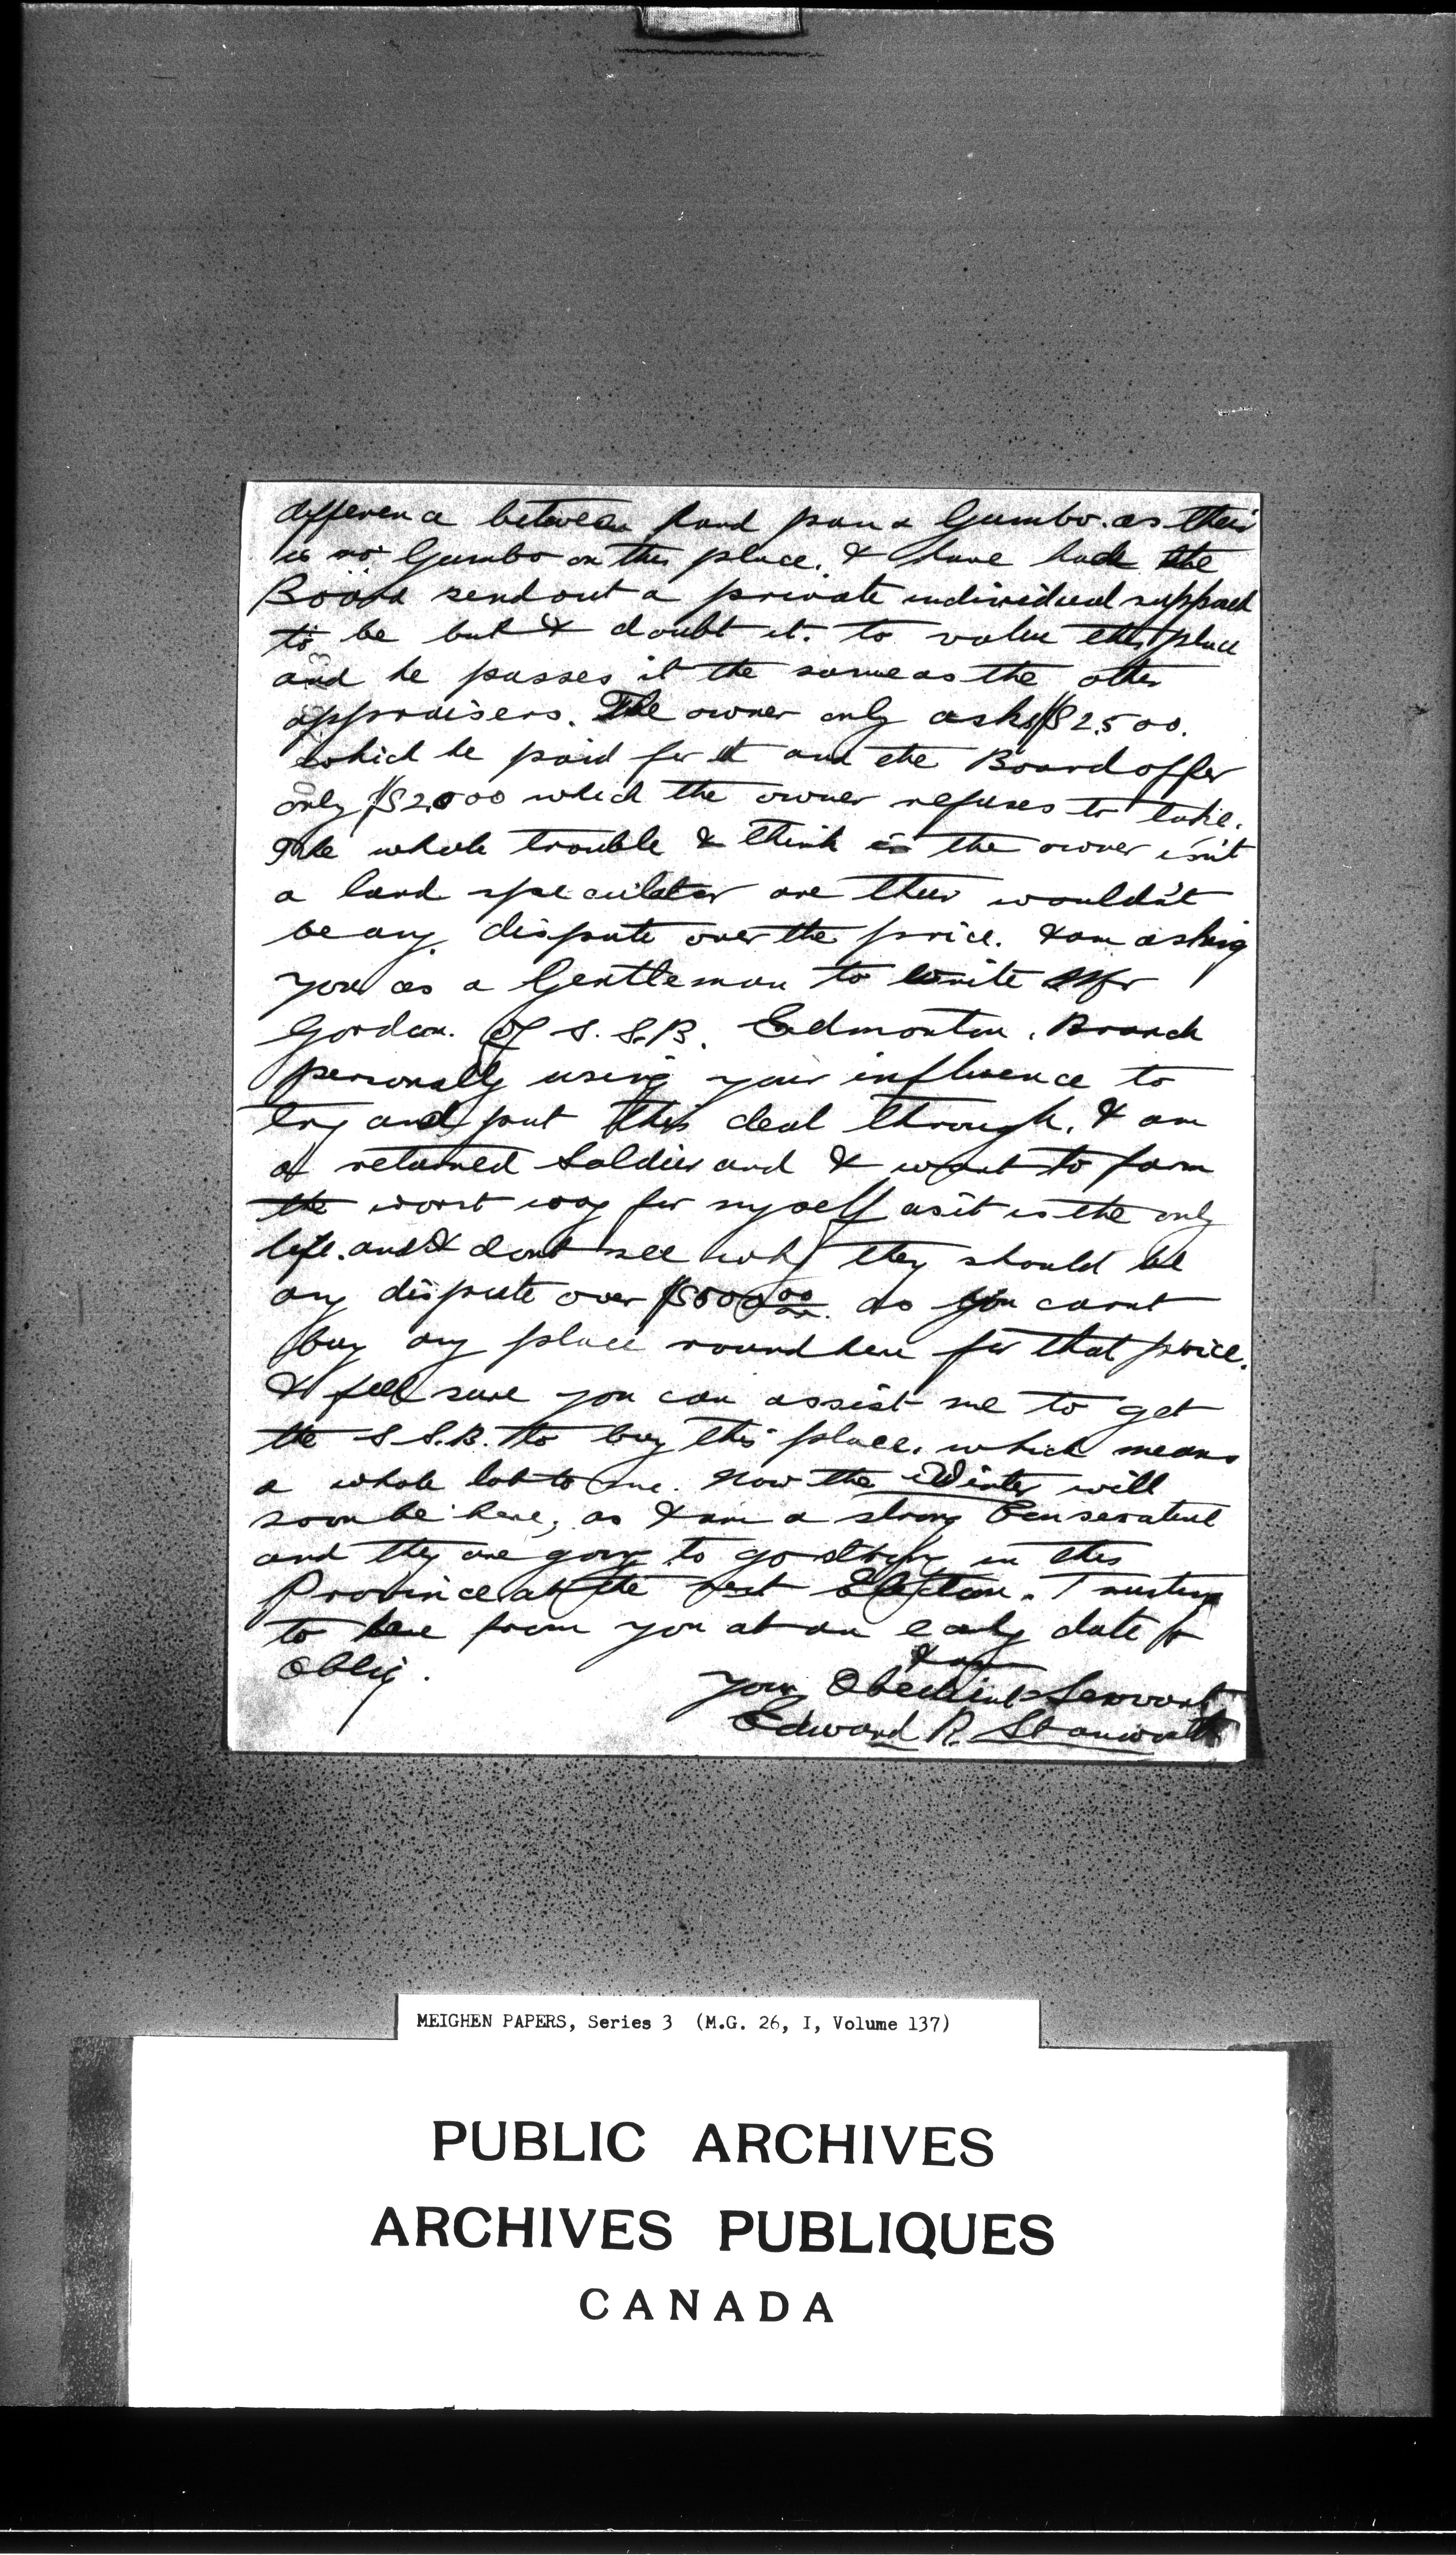 difference between hard pan & Gumbo. as their
is no Gumbo on this place. I have had the
Board send out a private individual supposed
to be but I doubt it. to value this place
and he passes it the same as the other
appraisers. The owner only asks $2500.
which he paid for it and the Board offer
only $2000 which the owner refuses to take.
The whole trouble I think is the owner isn't
a land speculator are their wouldn't
be any dispute over the price. I am asking
you as a Gentleman to write Mr
Gordon. of S.S.B. Edmonton. Branch
personally using your influence to
try and put this deal through. I am
a returned Soldier and I want to farm
the worst way for myself as it is the only
life. and I dont see why they should be
any dispute over $500.00 as you cannt
buy any place round here for that price.
I feel sure you can assist me to get
the S.S.B. to buy this place. which means
a whole lot to me. Now the Winter will
soon be here, as I am a strong
and they are going to go in this
Province at the next Election. Trusting
to hear from you at an early date &
Oblig.
I am
your Obedient Servant
Edward R. Stanworth
MEIGHEN PAPERS, Series 3 (M.G. 26, I, Volume 137)
PUBLIC ARCHIVES
ARCHIVES PUBLIQUES
CANADA